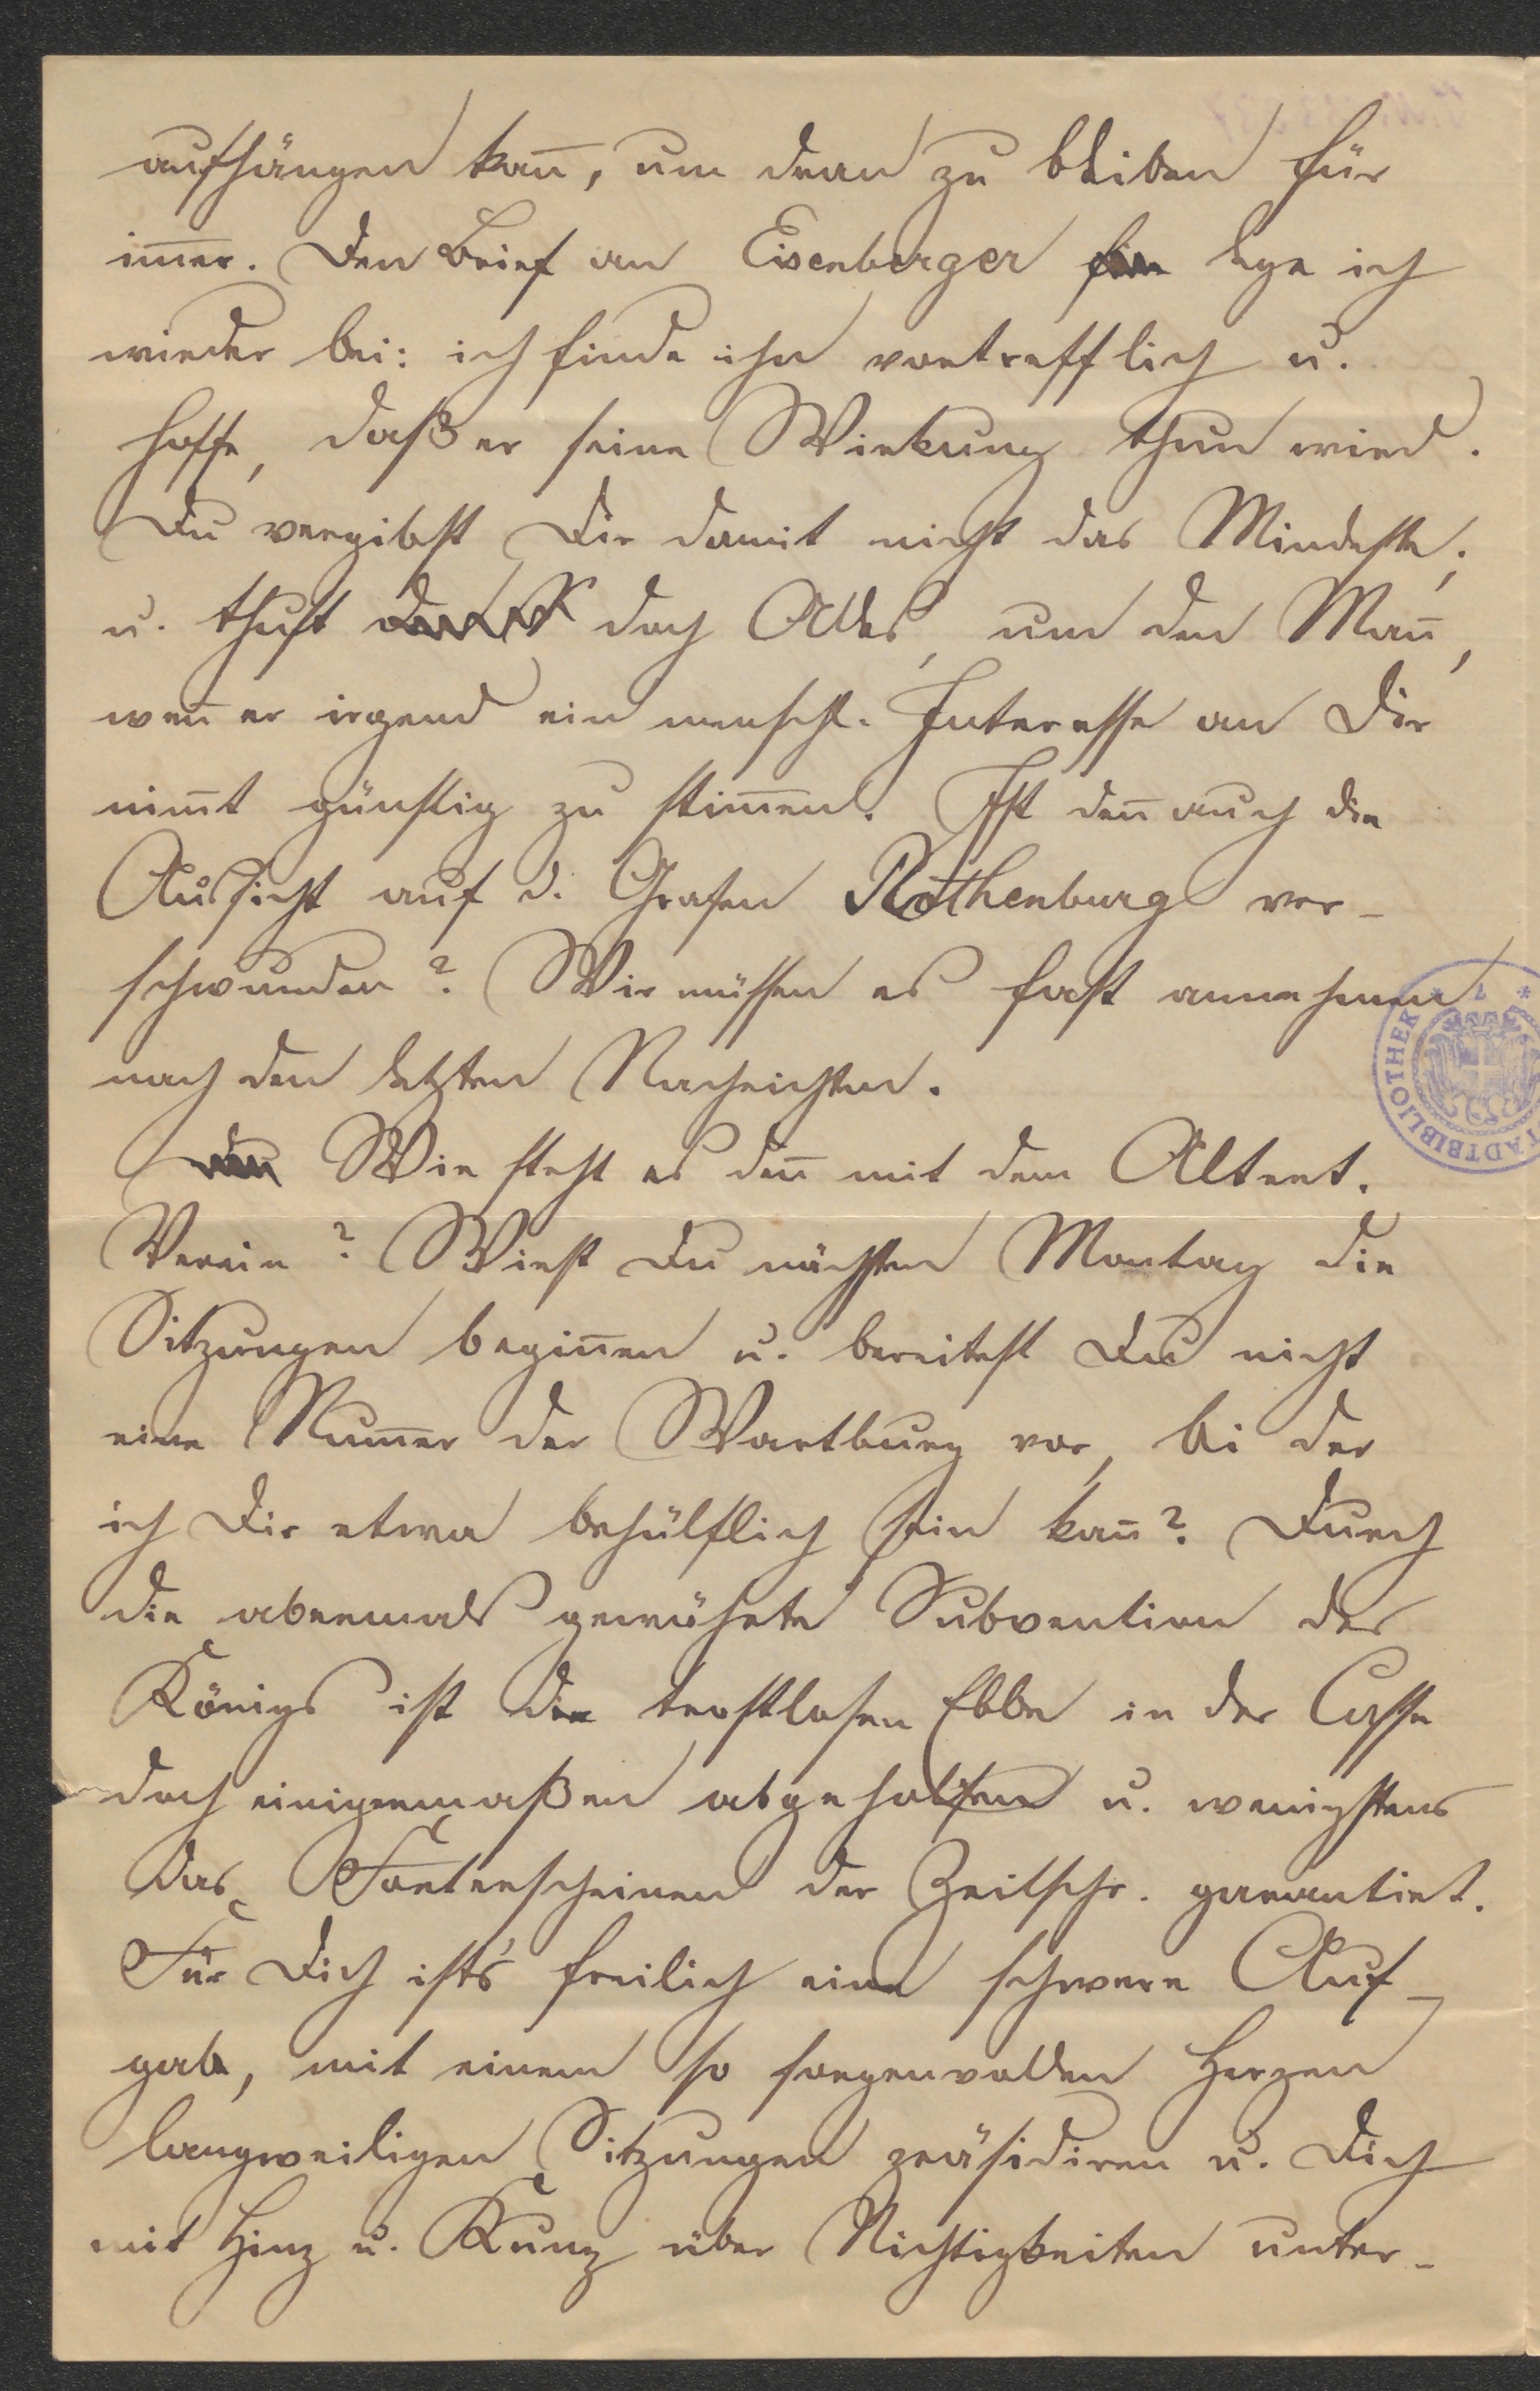 aufhängen kan̄, um dran zu bleiben für
im̄er. Den Brief an Eisenberger lege ich
wieder bei: ich finde ihn vortrefflich u.
hoffe, daß er seine Wirkung thun wird.
Du vergibst Dir damit nicht das Mindeste,
u. thust doch Alles, um den Man̄,
wen̄ er irgend ein menschl. Interesse an Dir
nim̄t günstig zu stim̄en. Ist den̄ auch die
Aussicht auf d. Grafen Rothenburg ver-
schwunden? Wir müssen es fast annehmen
nach den letzten Nachrichten.
Wie steht es den̄ mit dem Altert.
Verein? Wirst Du nächsten Montag die
Sitzungen begin̄en u. bereitest Du nicht
eine Num̄er der Wartburg vor, bei der
ich Dir etwa behülflich sein kan̄? Durch
die abermals gewährte Subvention des
Königs ist der trostlosen Ebbe in der Casse
doch einigermaßen abgeholfen u. wenigstens
das Forterscheinen der Zeitschr. garantirt.
Für Dich ist's freilich eine schwere Auf-
gabe, mit einem so sorgenvollen Herzen
langweiligen Sitzungen präsidiren u. Dich
mit Hinz u. Kunz über Nichtigkeiten unter-
STADTBIBLIOTHEK